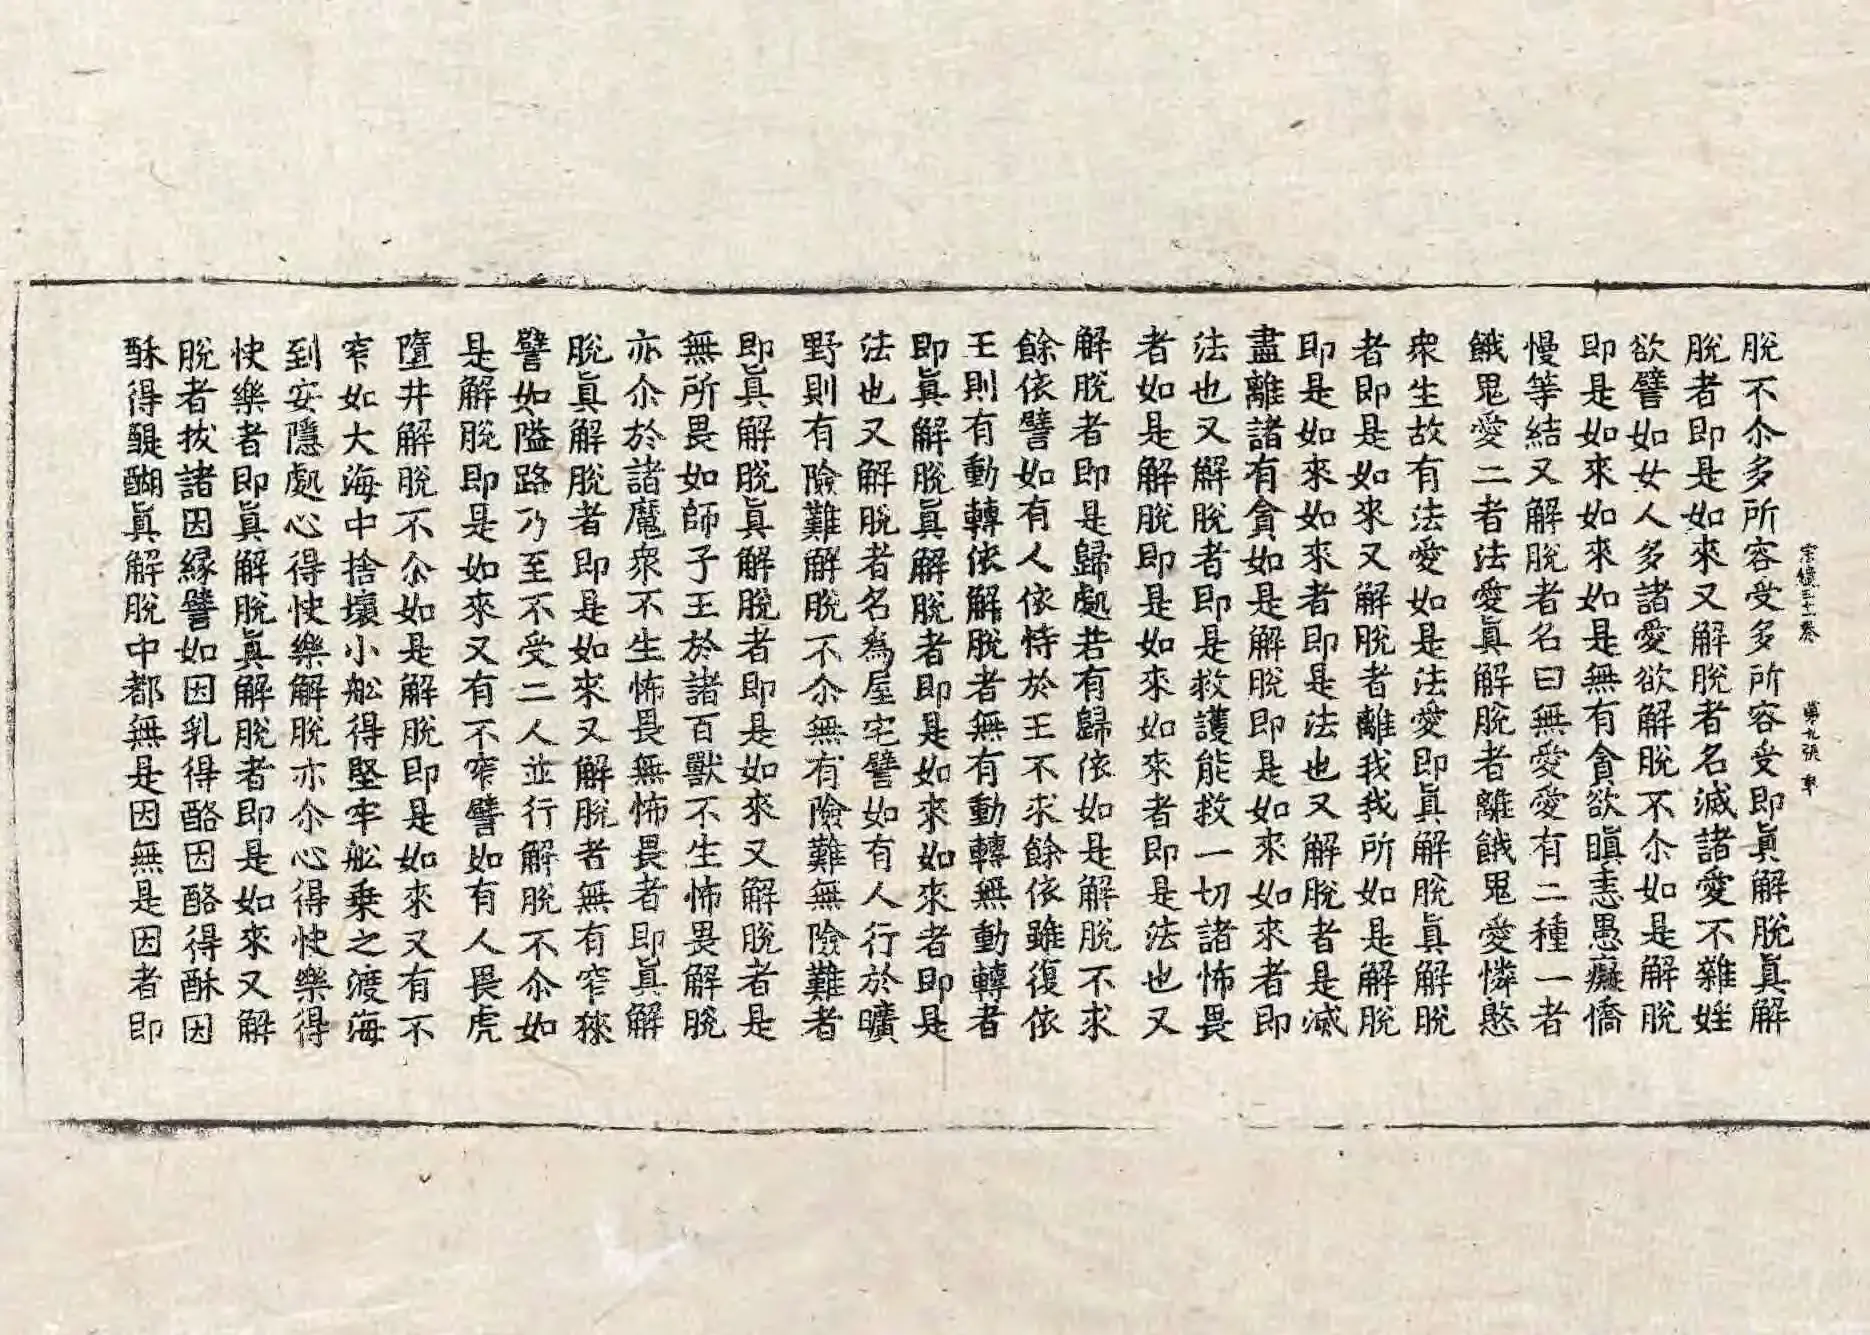 宗鏡三十一卷　第九張　軍
脫不尒多所容受多所容受即眞解脫眞解
脫者即是如來又解脫者名滅諸愛不雜婬
欲譬如女人多諸愛欲解脫不尒如是解脫
即是如來如來如是無有貪欲瞋恚愚癡憍
慢等結又解脫者名曰無愛愛有二種一者
餓鬼愛二者法愛眞解脫者離餓鬼愛憐愍
衆生故有法愛如是法愛即眞解脫眞解脫
者即是如來又解脫者離我我所如是解脫
即是如來如來者即是法也又解脫者是滅
盡離諸有貪如是解脫即是如來如來者即
法也又解脫者即是救護能救一切諸怖畏
者如是解脫即是如來如來者即是法也又
解脫者即是歸處若有歸依如是解脫不求
餘依譬如有人依恃於王不求餘依雖復依
王則有動轉依解脫者無有動轉無動轉者
即眞解脫眞解脫者即是如來如來者即是
法也又解脫者名爲屋宅譬如有人行於曠
野則有險難解脫不尒無有險難無險難者
即眞解脫眞解脫者即是如來又解脫者是
無所畏如師子王於諸百獸不生怖畏解脫
亦尒於諸魔衆不生怖畏無怖畏者即眞解
脫眞解脫者即是如來又解脫者無有窄狹
譬如隘路乃至不受二人並行解脫不尒如
是解脫即是如來又有不窄譬如有人畏虎
墮井解脫不尒如是解脫即是如來又有不
窄如大海中捨壞小舩得堅牢舩乗之渡海
到安隱處心得快樂解脫亦尒心得快樂得
快樂者即眞解脫眞解脫者即是如來又解
脫者拔諸因緣譬如因乳得酪因酪得酥因
酥得醍醐眞解脫中都無是因無是因者即